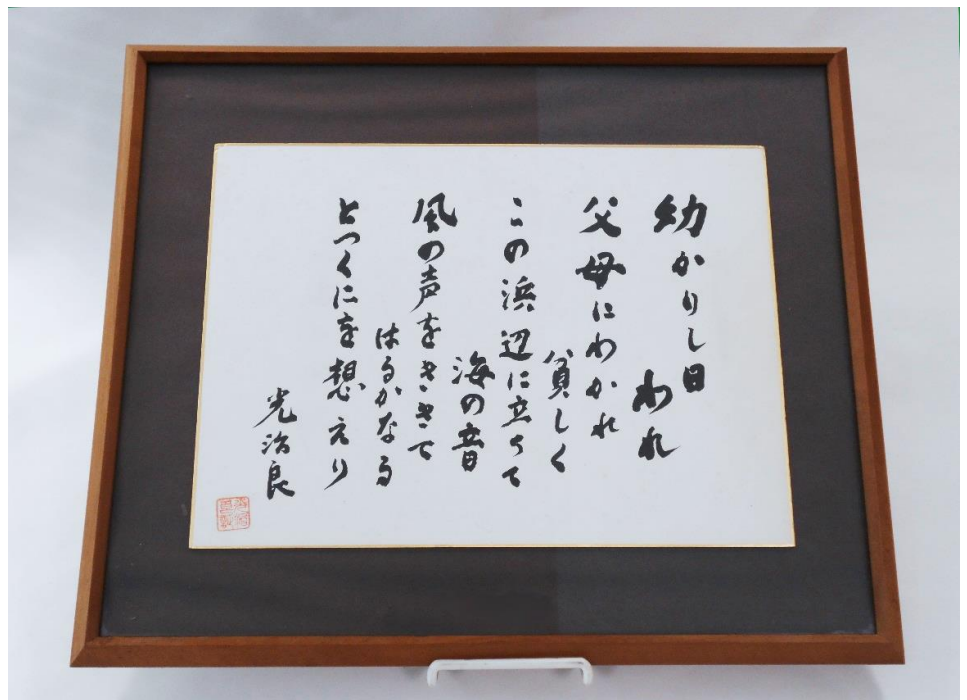 幼かりし日
われ
父母にわかれ
貧しく
この浜辺に立ちて
海の音
風の声をきゝて
はるかなる
とつくにを想えり
光治良